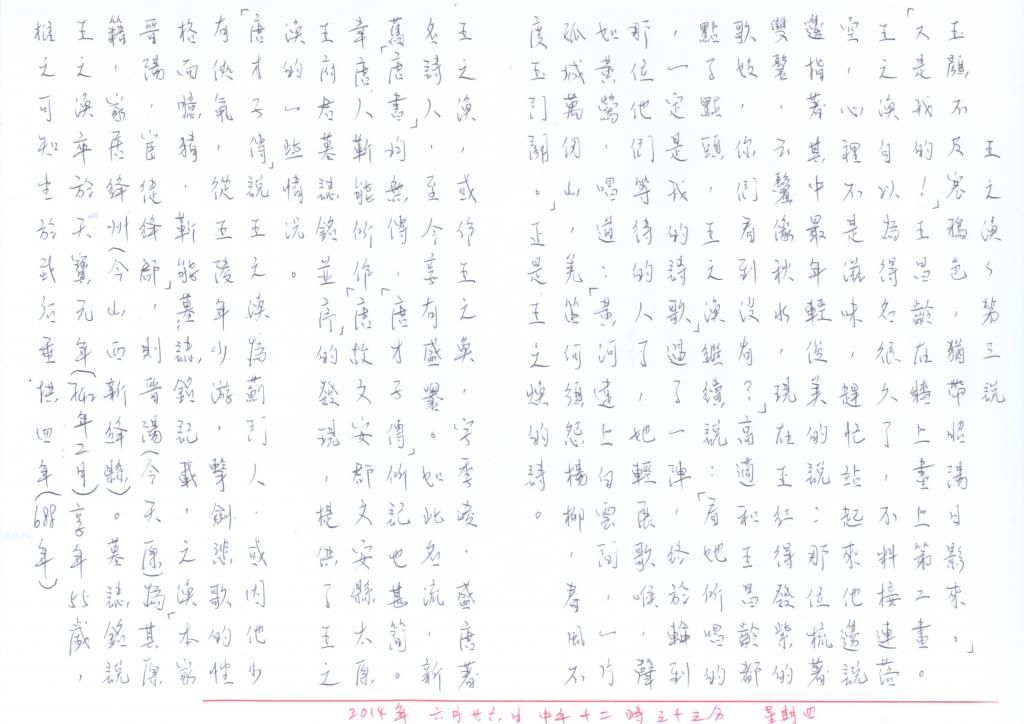 王之渙〈第三說
玉顏不及寒鴉色,猶帶昭陽日影來。」
「又是我的!」王昌齡在牆上畫上第二畫。
王之渙自以為得名很久了,不料接連落
空,心裡不是滋味,趕忙站起來他邊說
邊指著其中最年輕俊美的說:那位梳著
雙鬟,云鬟像秋水,現在王紅得發紫的
歌妓,你們看到沒有?」高適和王昌齡都
點了點頭,王之渙繼續說:「看她所唱的
,一定是我的詩歌」過了一陣,終於輪到
那位他們等待的人了,她輕展歌喉,聲
如黃鶯,唱道:「黃河遠上白雲間,一片
孤城萬仞山,羌笛何須怨楊柳,春風不
度玉門關。」正是王之煥的詩。
王之渙,或作王之奐,字季淩,盛唐著
名詩人,至今享有盛譽。如此名流,新
舊「唐書」均無傳,「唐才子傳」所記也甚簡。
幸「唐人靳能所作「唐故文安郡文安縣太原
王府君墓誌銘並序」的發現,提供了王之
渙的一些情況。
「唐才子傳」說王之渙為薊門人.或因他少
有俠氣,從五陵年少游,擊劍悲歌的性
格而臆猜,靳能「墓誌銘記載,之渙「本家
晉陽,宦徙絳郡」,則晉陽(今天原)為其原
籍,家居絳州(今山西新絳縣)。墓誌銘說
王之渙卒於天寶元年(年二月)享年55歲,
推之可知生於武后垂拱四年(688年)
2014年 六月廿六日 中午十二時三十三分 星期四